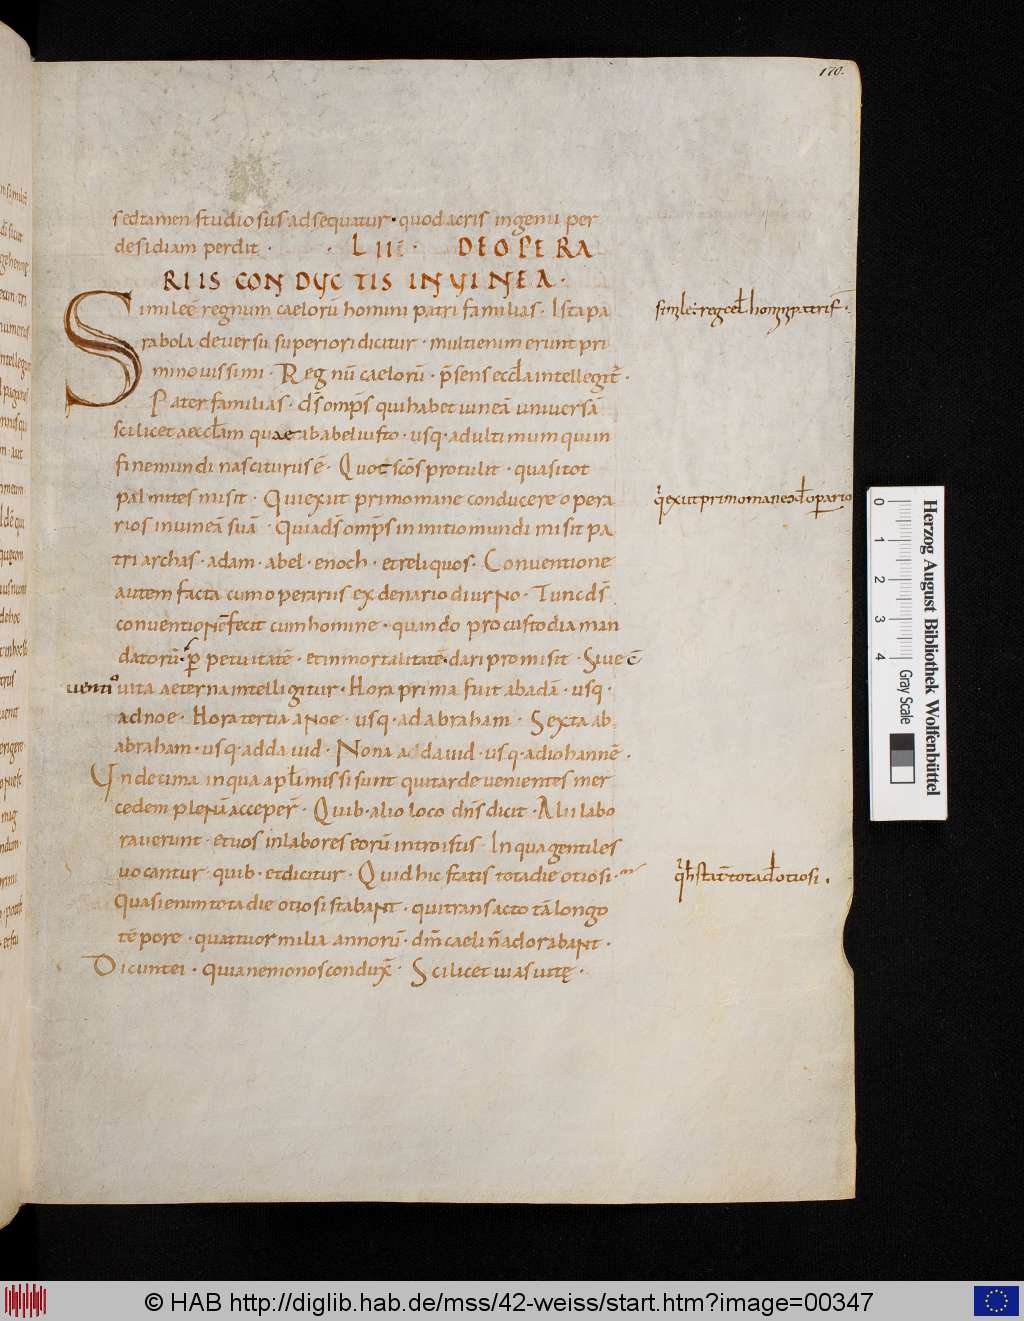 170.
sed tamen studiosus adsequatur · quod acris ingenii per
desidiam perdit · · LIII · DE OPERA
RIIS CONDUCTIS IN UINEA ·
Simile ē regnum caelorū homini patri familias · Ista pa
rabola de uersu superiori dicitur · multi enim erunt pri
mi nouissimi · Regnū caelorū · p̄sens eccła intellegit̄ ·
Pater familias · d̄s omp̄s qui habet uineā uniuersā
scilicet aeccłam quae ab abel iusto · usq · ad ultimum qui in
fine mundi nasciturus ē · Quot sc̄os protulit · quasi tot
palmites misit · Qui exiit primo mane conducere opera
rios in uineā suā · Quia d̄s omp̄s in initio mundi misit pa
triarchas · adam · abel · enoch · et reliquos · Conuentione
autem facta cum operariis ex denario diurno · Tunc d̄s
conuentionē fecit cum homine · quando pro custodia man
datorū · p petuitatē · et inmortalitatē · dari promisit · Siue c̄
uenti
uita aeterna intelligitur · Hora prima fuit ab adā · usq ·
ad noe · Hora tertia a noe · usq · ad abraham · Sexta ab
abraham · usq · ad dauid · Nona a dauid · usq · ad iohannē ·
Undecima in qua apłi missi sunt qui tarde uenientes mer
cedem plenā acceper̄ · Quib · alio loco dn̄s dicit · Alii labo
rauerunt · et uos in labores eorū introistis · In qua gentiles
uocantur · quib · et dicitur · Quid hic statis tota die otiosi ·
Quasi enim tota die otiosi stabant · qui transacto tā longo
tēpore · quattuor milia annorū · dm̄ caeli n̄ adorabant ·
Dicunt ei · quia nemo nos conduxī · Scilicet uias uitę ·
0
1
2
3
4
Herzog August Bibliothek Wolfenbüttel
Gray Scale
© HAB http://diglib.hab.de/mss/42-weiss/start.htm?image=00347